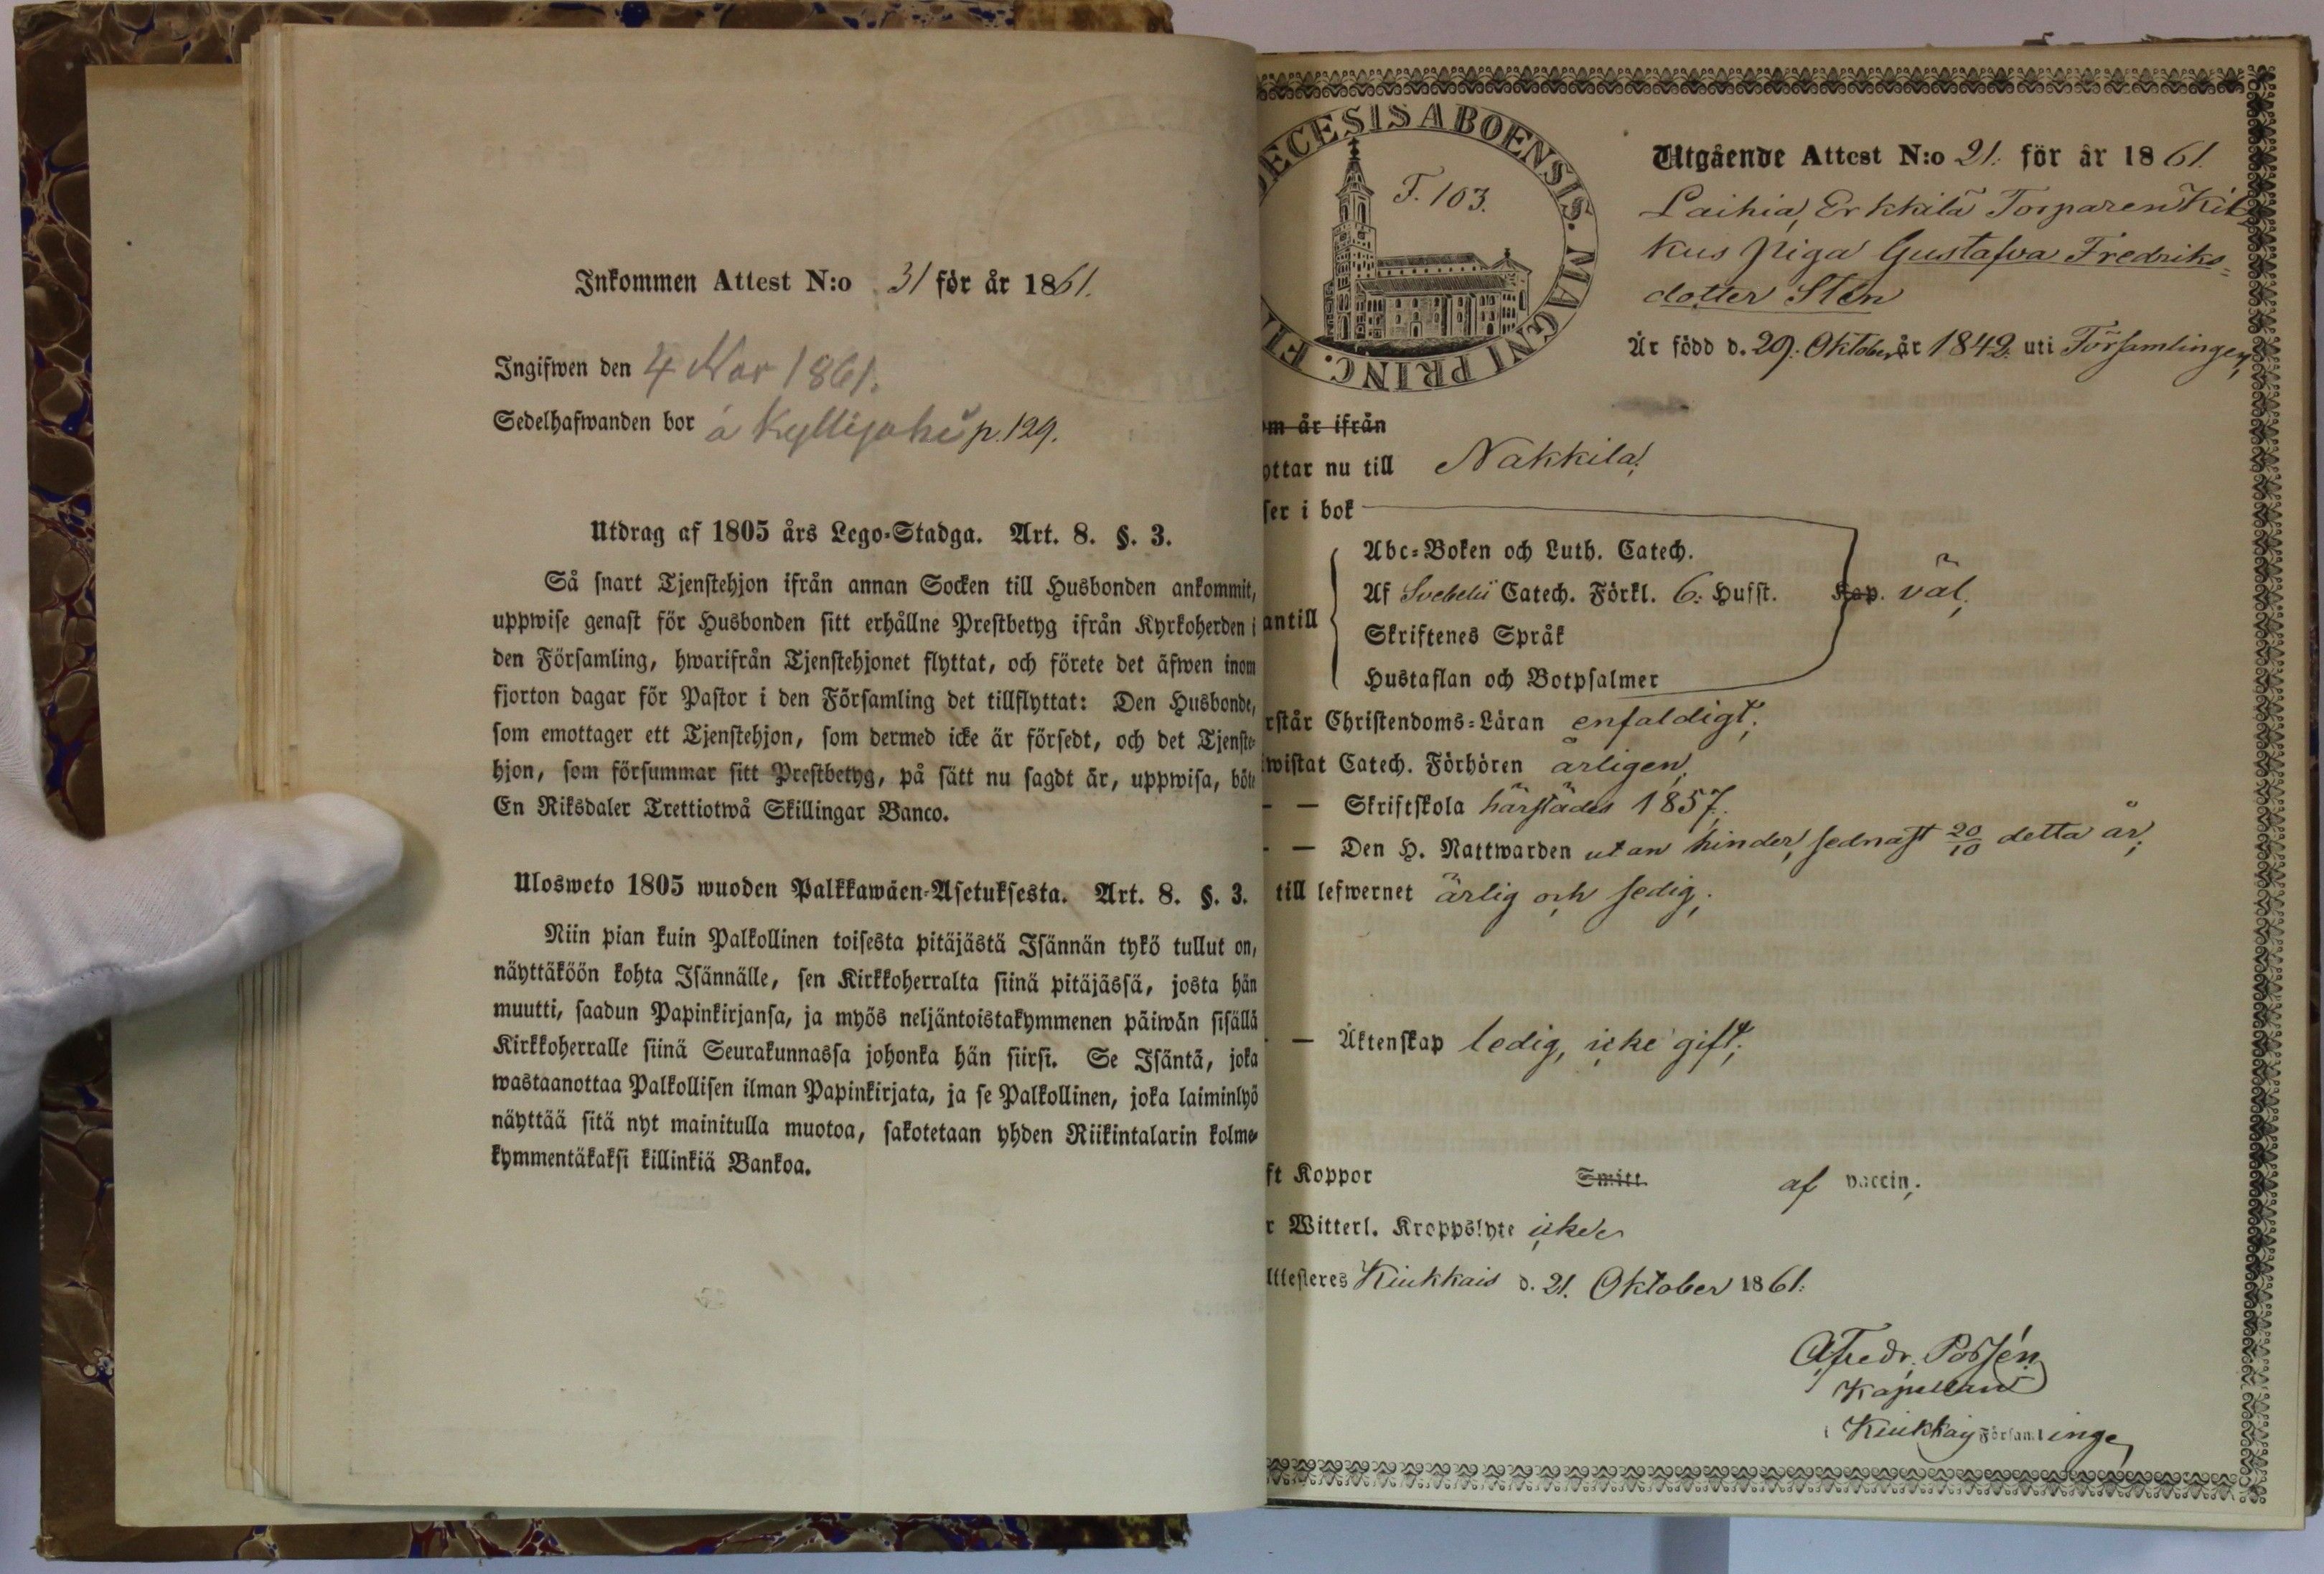 Inkommen Attest N:o 31 för år 1861.
Ingifwen den 4 Nov 1861.
Sedelhafwanden bor å Kyllijoki p. 129.
Utdrag af 1805 års Lego-Stadga. Art. 8. §. 3.
Så snart Tjenstehjon ifrån annan Socken till Husbonden ankommit,
uppwise genast för Husbonden sitt erhållne Prestbetyg ifrån Kyrkoherden i
den Församling, hwarifrån Tjenstehjonet flyttat, och förete det äfwen inom
fjorton dagar för Pastor i den Församling det tillflyttat: Den Husbonde,
som emottager ett Tjenstehjon, som dermed icke är försedt, och det Tjenste-
hjon, som försummar sitt Prestbetyg, på sätt nu sagdt är, uppwisa, böte
En Riksdaler Trettiotwå Skillingar Banco.
Ulosweto 1805 wuoden Palkkawäen-Asetuksesta. Art. 8. §. 3.
Niin pian kuin Palkollinen toisesta pitäjästä Isännän tykö tullut on,
näyttäköön kohta Isännälle, sen Kirkkoherralta siinä pitäjässä, josta hän
muutti, saadun Papinkirjansa, ja myös neljäntoistakymmenen päiwän sisällä
Kirkkoherralle siinä Seurakunnassa johonka hän siirsi. Se Isäntä, joka
wastaanottaa Palkollisen ilman Papinkirjata, ja se Palkollinen, joka laiminlyö
näyttää sitä nyt mainitulla muotoa, sakotetaan yhden Riikintalarin kolme-
kymmentäkaksi killinkiä Bankoa.
ECESIS ABOENSIS. MAGNI PRINC. FI
T. 103.
Utgående Attest N:o 21. för år 1861.
Laihia, Erkkilä Torparen
kus piga Gustafva Fredriks-
dotter Stén
Är född d. 29. Oktober år 1842. uti Församlingen,
m år ifrån
ottar nu till Nakkila;
ser i bok
Abc-Boken och Luth. Catech.
Af Svebelii Catech. Förkl. 6. Hufst. Kap. väl,
antill
Skriftenes Språk
Hustaflan och Botpsalmer
rstår Christendoms-Läran enfaldigt;
iwistat Catech. Förhören årligen,
— — Skriftskola härstädes 1857;
— — Den H. Nattwarden utan hinder, sednast 20/10 detta år;
till lefwernet ärlig och sedig;
— — Äktenskap ledig, icke gift;
ft Koppor Smitt. af vaccin;
r Witterl. Kroppslyte icke
ttesteres Kiukkais d. 21. Oktober 1861.
Afredr. Possén
Kapellan
i Kiukkais Församlinge